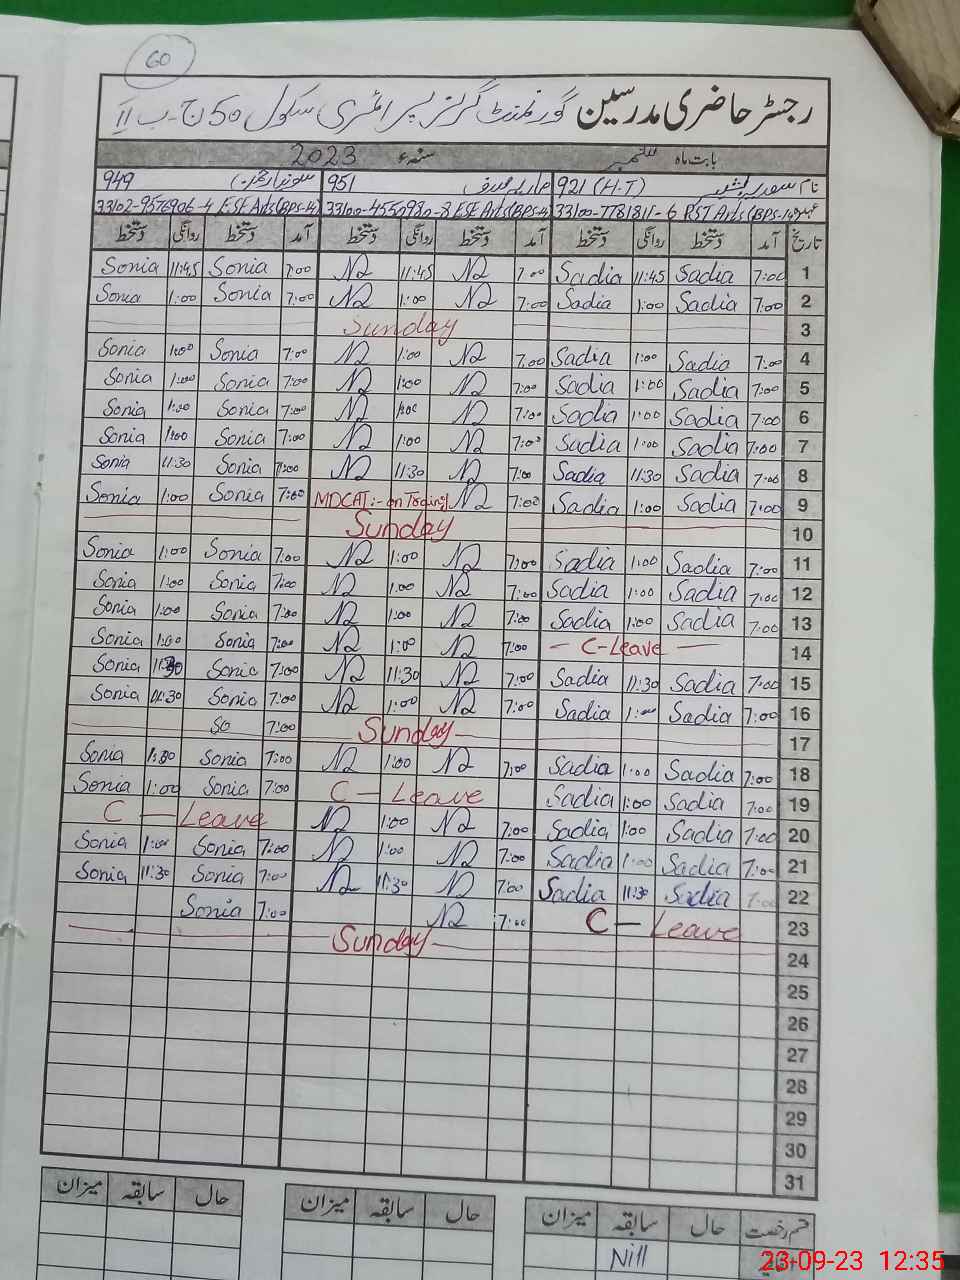 60
رجسٹر حاضری مدرسین گورنمنٹ گرلز پرائمری سکول 50 ج۔ب II
بابت ماہ ستمبر سنہء 2023
نام سعدیہ 921 (H.T) 951 949
33100-7781811-6 PST Arts (BPS-14) 33100-4550980-8 ESE Arts (BPS-14) 33102-9576906-4 ESE Arts (BPS-14)
تاریخ آمد دستخط روانگی دستخط آمد دستخط روانگی دستخط آمد دستخط روانگی دستخط
1 7:00 Sadia 11:45 Sadia 7:00 N2 11:45 N2 7:00 Sonia 11:45 Sonia
2 7:00 Sadia 1:00 Sadia 7:00 N2 1:00 N2 7:00 Sonia 1:00 Sonia
3 Sunday
4 7:00 Sadia 1:00 Sadia 7:00 N2 1:00 N2 7:00 Sonia 1:00 Sonia
5 7:00 Sadia 1:00 Sadia 7:00 N2 1:00 N2 7:00 Sonia 1:00 Sonia
6 7:00 Sadia 1:00 Sadia 7:00 N2 1:00 N2 7:00 Sonia 1:00 Sonia
7 7:00 Sadia 1:00 Sadia 7:00 N2 1:00 N2 7:00 Sonia 1:00 Sonia
8 7:00 Sadia 11:30 Sadia 7:00 N2 11:30 N2 7:00 Sonia 11:30 Sonia
9 7:00 Sadia 1:00 Sadia 7:00 N2 MDCAT:- on 7:00 Sonia 1:00 Sonia
10 Sunday
11 7:00 Sadia 1:00 Sadia 7:00 N2 1:00 N2 7:00 Sonia 1:00 Sonia
12 7:00 Sadia 1:00 Sadia 7:00 N2 1:00 N2 7:00 Sonia 1:00 Sonia
13 7:00 Sadia 1:00 Sadia 7:00 N2 1:00 N2 7:00 Sonia 1:00 Sonia
14 - C-Leave - 7:00 N2 1:00 N2 7:00 Sonia 1:00 Sonia
15 7:00 Sadia 11:30 Sadia 7:00 N2 11:30 N2 7:00 Sonia 11:30 Sonia
16 7:00 Sadia 1:00 Sadia 7:00 N2 1:00 N2 7:00 Sonia Sonia
17 Sunday 7:00 So
18 7:00 Sadia 1:00 Sadia 7:00 N2 1:00 N2 7:00 Sonia 1:30 Sonia
19 7:00 Sadia 1:00 Sadia C - Leave 7:00 Sonia 1:00 Sonia
20 7:00 Sadia 1:00 Sadia 7:00 N2 1:00 N2 C - Leave
21 7:00 Sadia 1:00 Sadia 7:00 N2 1:00 N2 7:00 Sonia 1:00 Sonia
22 7:00 Sadia 11:30 Sadia 7:00 N2 11:30 N2 7:00 Sonia 11:30 Sonia
23 C - Leave 7:00 N2 7:00 Sonia
24 Sunday
25
26
27
28
29
30
31
قسم رخصت حال سابقہ میزان حال سابقہ میزان حال سابقہ میزان
Nill
23-09-23 12:35